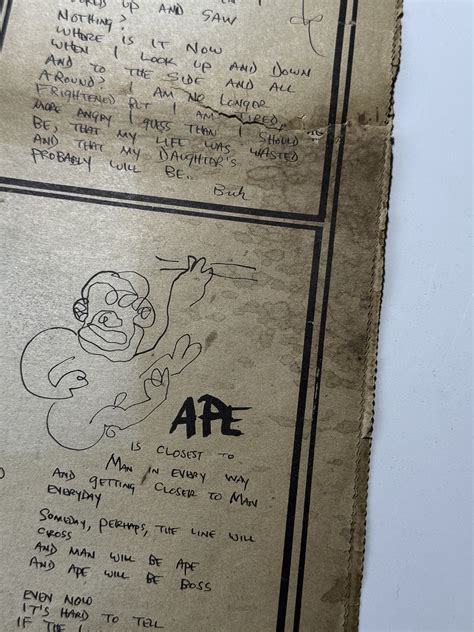 UP AND SAW
NOTHING?
WHERE IS IT NOW
WHEN I LOOK UP AND DOWN
AND TO THE SIDE AND ALL
AROUND? I AM NO LONGER
FRIGHTENED BUT I AM TIRED,
MORE ANGRY I GUESS THAN I SHOULD
BE, THAT MY LIFE WAS WASTED
AND THAT MY DAUGHTER'S
PROBABLY WILL BE..
APE
IS CLOSEST TO
MAN IN EVERY WAY
AND GETTING CLOSER TO MAN
EVERYDAY
SOMEDAY, PERHAPS, THE LINE WILL
CROSS
AND MAN WILL BE APE
AND APE WILL BE BOSS
EVEN NOW
IT'S HARD TO TELL
IF THE